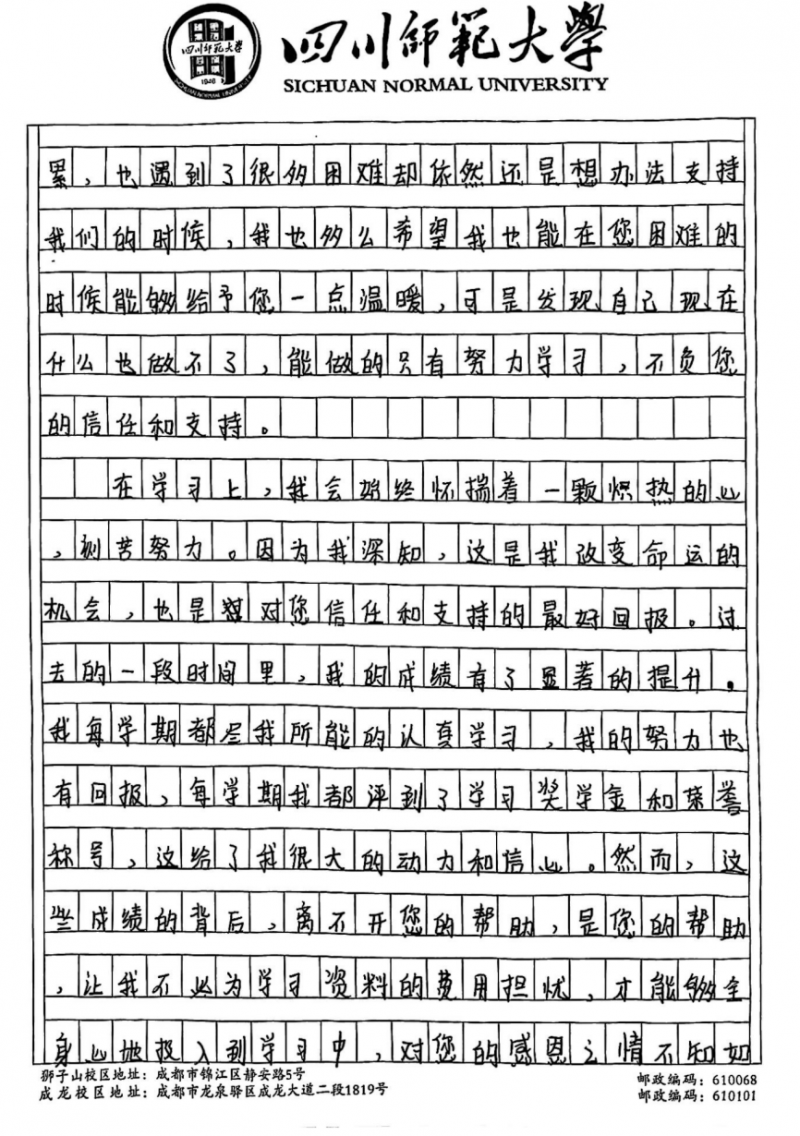 四川师范大学
1946
SICHUAN NORMAL UNIVERSITY
四川師範大學
SICHUAN NORMAL UNIVERSITY
累，也遇到了很多困难却依然还是想办法支持
我们的时候，我也多么希望我也能在您困难的
时候能够给予您一点温暖，可是发现自己现在
什么也做不了，能做的只有努力学习，不负您
的信任和支持。
在学习上，我会始终怀揣着一颗炽热的心
，刻苦努力。因为我深知，这是我改变命运的
机会，也是对您信任和支持的最好回报。过
去的一段时间里，我的成绩有了显著的提升。
我每学期都尽我所能的认真学习，我的努力也
有回报，每学期我都评到了学习奖学金和荣誉
称号，这给了我很大的动力和信心。然而，这
些成绩的背后，离不开您的帮助，是您的帮助
，让我不必为学习资料的费用担忧，才能够全
身心地投入到学习中，对您的感恩之情不知如
狮子山校区地址：成都市锦江区静安路5号
邮政编码：610068
成龙校区地址：成都市龙泉驿区成龙大道二段1819号
邮政编码：610101